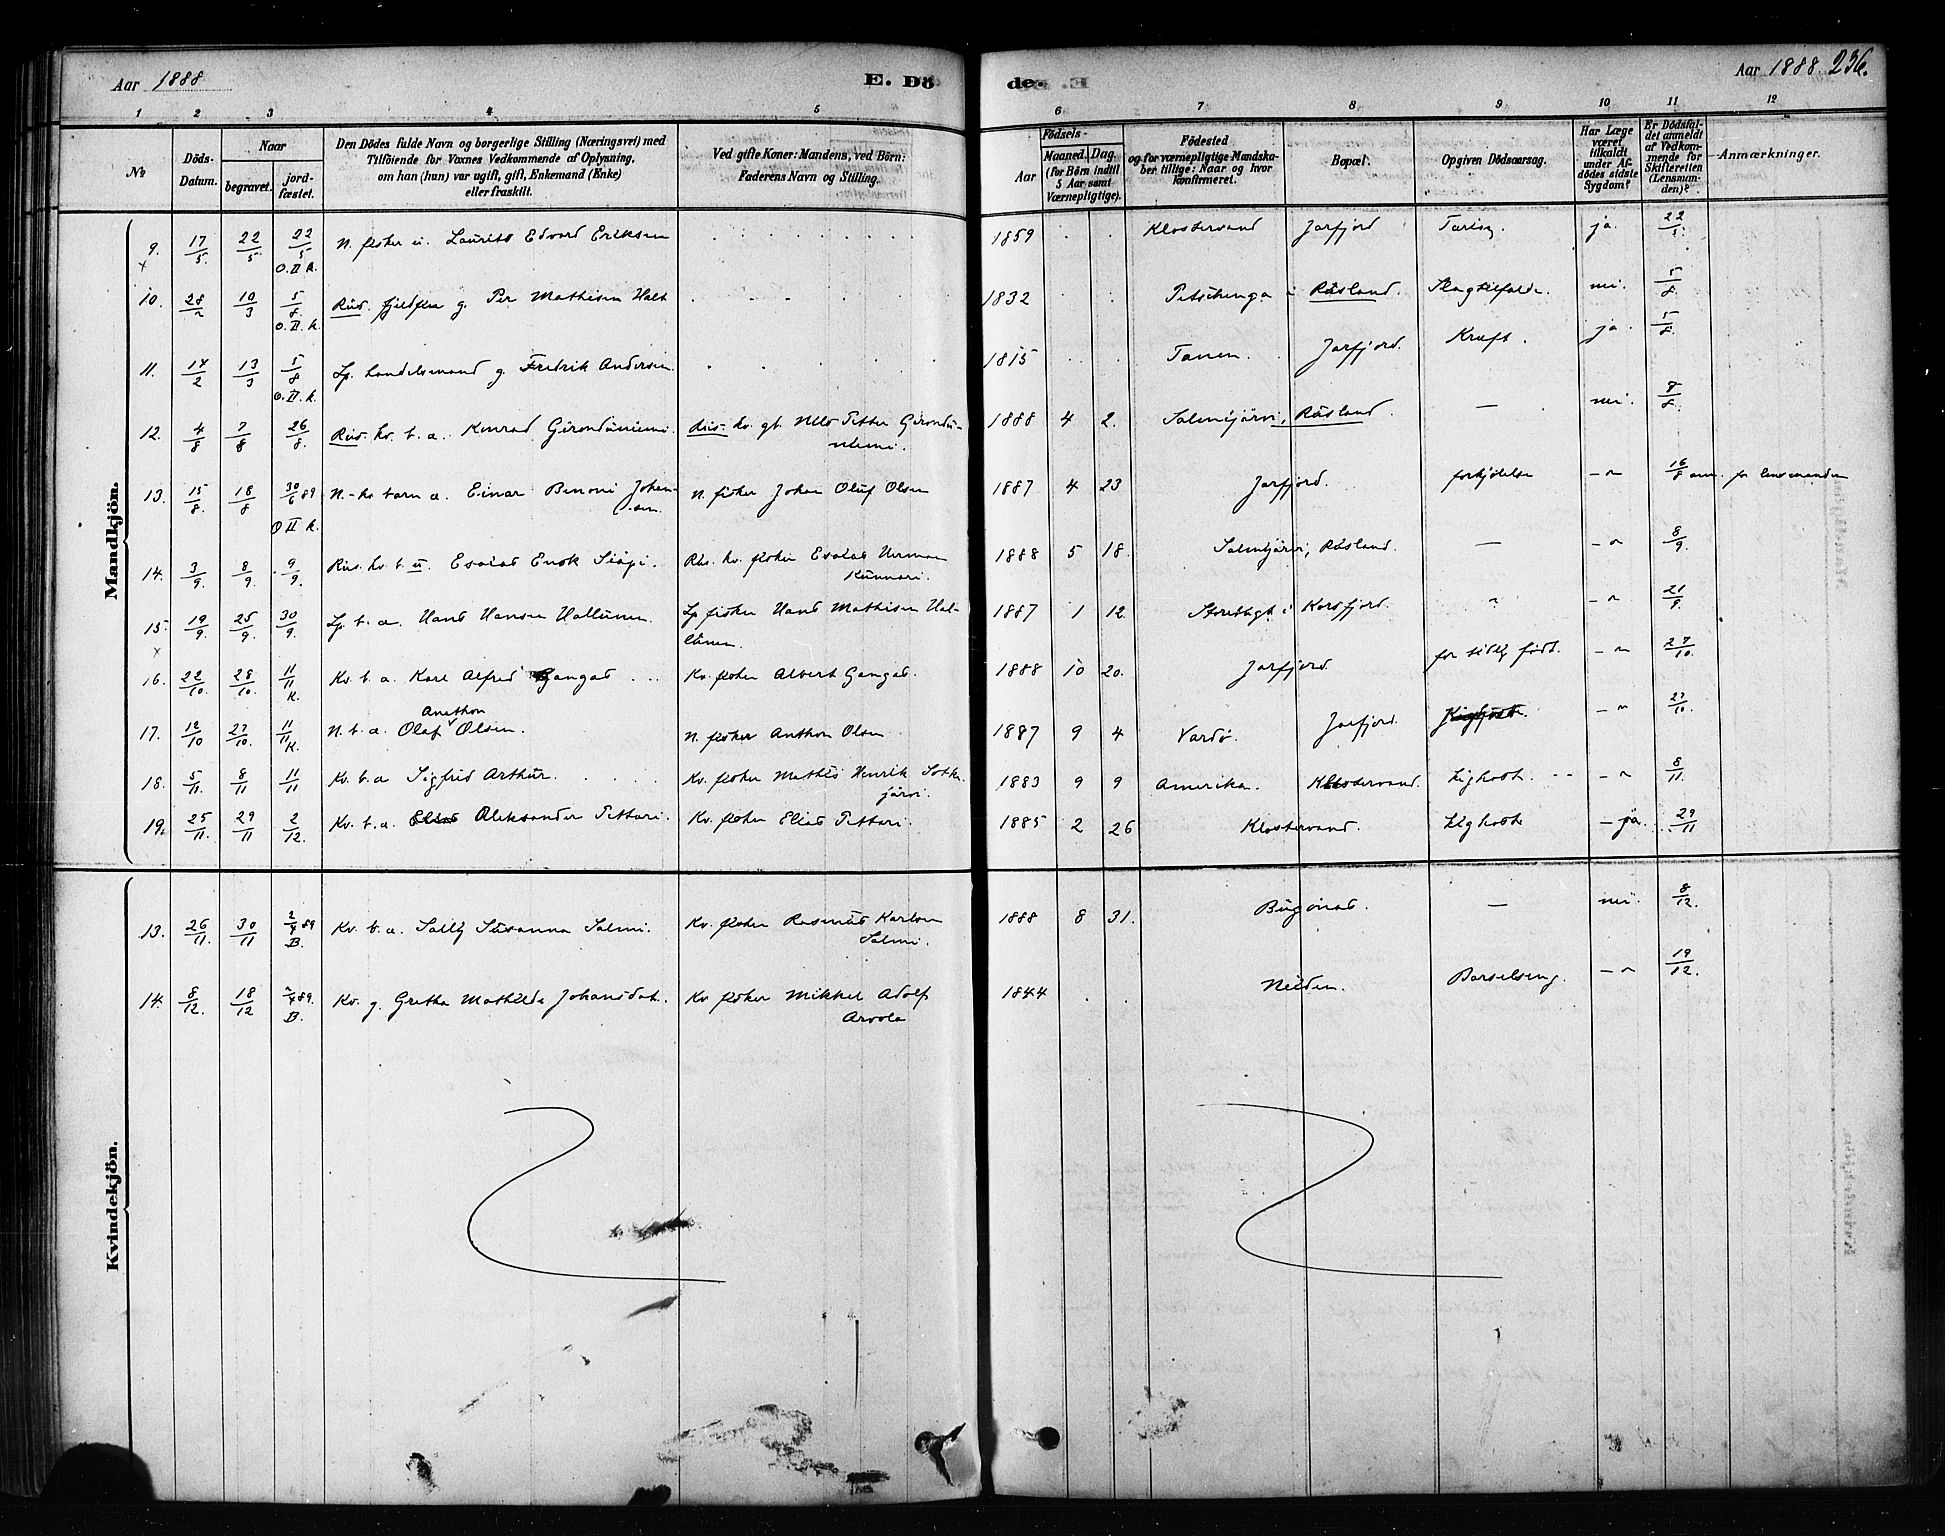 Aar 1888
E. Dö
de.
Aar 1888. 236.
1 2 3 4 5 6 7 8 9 10 11 12
No
Döds-Datum.
Naar
begravet.
jord-fæstet.
Den Dödes fulde Navn og borgerlige Stilling (Næringsvei) med
Tilföiende for Voxnes Vedkommende af Oplysning,
om han (hun) var ugift, gift, Enkemand (Enke)
eller fraskilt.
Ved gifte Koner: Mandens, ved Börn:
Faderens Navn og Stilling.
Födsels-
Aar
Maaned. Dag.
(for Börn indtil
5 Aar samt
Værnepligtige).
Födested
og for værnepligtige Mandska-
ber tillige: Naar og hvor
konfirmeret.
Bopæl.
Opgiven Dödsaarsag.
Har Læge
været
tilkaldt
under Af-
dödes sidste
Sygdom?
Er Dödsfal-
det anmeldt
af Vedkom-
mende for
Skifteretten
(Lensman-
den)?
Anmærkninger.
Mandkjön.
9. 17/5. 22/5. 22/5 O.II K. N. fisker u. Laurits Edvard Eriksen 1859 Klostervand Jarfjord ja. 22/5.
10. 28/2 10/3 5/8. O.II.K. Rus. fjeldfin g. Per Mathisen Halt 1832 Petschenga i Rusland. Slagtilfælde. nei. 5/8.
11. 14/2 13/3 5/8 O.II.K. Lp. handelsmand g. Fredrik Andersen. 1815 Tanen. Jarfjord. Kræft. ja. 5/8.
12. 4/8 7/8 26/8. Rus. kv. b. a. Konrad Girondüniemi. Rus. kv. gb. Nils Petter Girondü-
niemi. 1888 4 2. Salmijärvi, Rusland. — nei. 8/8.
13. 15/8. 18/8 30/6 89 O II K. N.-kv barn a. Einar Benoni Johan-
sen. N. fisker Johan Oluf Olsen 1887 4 23 Jarfjord. forkjølelse — " 16/8 anm. for lensmanden
14. 3/9. 8/9. 9/9. Rus. kv. b. u. Esaias Enok Siäpi. Rus. kv. fisker Esaias Herman
Kunnari. 1888 5 18. Salmijärvi, Rusland. — — " 8/9.
15. 19/9. 25/9. 30/9. Lp. b. a. Hans Hansen Hallunen. Lp fisker Hans Mathisen Hal-
lunen. 1887 1 12. Storebugt i Korsfjord. " — " 21/9.
16. 22/10. 28/10. 11/11 K. Kv. b. a. Karl Alfred Gangas Kv. fisker Albert Gangas. 1888 10 20. Jarfjord for tidlig født. — " 27/10.
17. 12/10 27/10. 11/11 K. N. b. a. Olaf Anethon Olsen. N. fisker Anthon Olsen 1887 9 4 Vardø. Jarfjord. — " 27/10.
18. 5/11. 8/11 11/11 Kv. b. a Sigfrid Arthur. Kv. fisker Mathis Henrik Sotka-
järvi. 1883 9 9 Amerika. Klostervand. Kighoste. — " 8/11.
19. 25/11. 29/11 2/12. Kv. b. a. Elias Aleksander Pettari. Kv. fisker Elias Pettari. 1885 2 26 Klostervand. Kighoste — ja. 29/11
Kvindekjön.
13. 26/11. 30/11 2/4 89 B. Kv. b. a. Sally Susanna Salmi. Kv. fisker Rasmus Karlsen
Salmi. 1888 8 31. Bugønæs. — nei. 8/12.
14. 8/12. 18/12 2/4 89. B. Kv. g. Gretha Mathilde Johansdat. Kv fisker Mikkel Adolf
Arvola 1844 Neiden. Barselseng. — " 19/12.